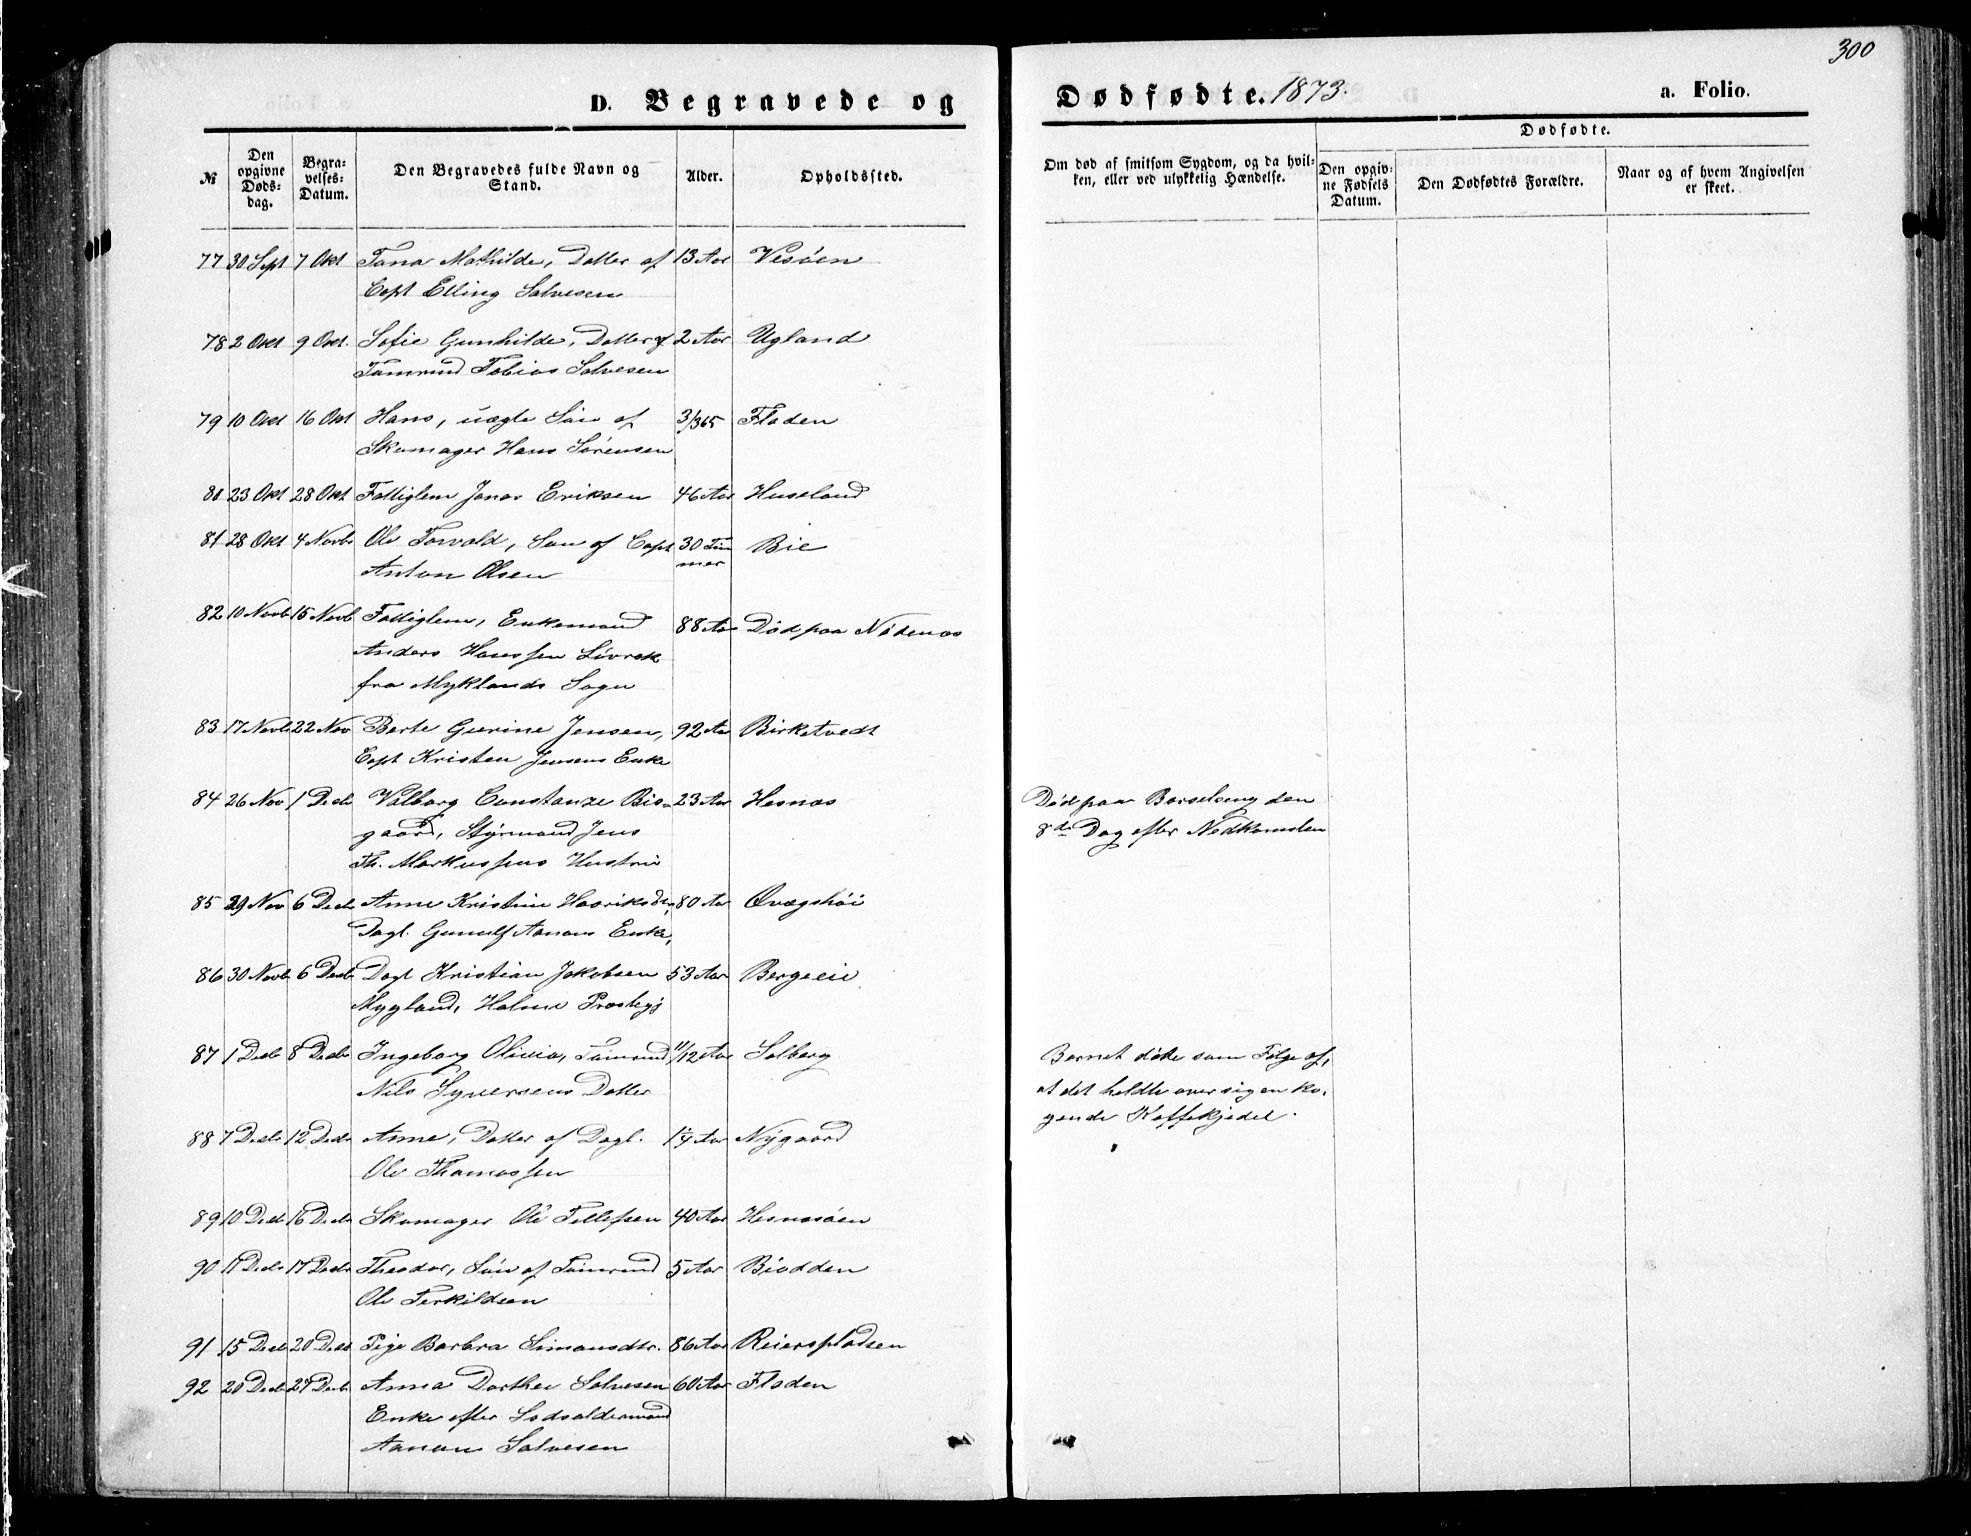 300
D. Begravede og
Dødfødte. 1873.
a. Folio.
№
Den opgivne Døds-dag.
Begra-velses-Datum.
Den Begravedes fulde Navn og Stand.
Alder.
Opholdssted.
Om død af smitsom Sygdom, og da hvil-ken, eller ved ulykkelig Hændelse.
Dødfødte.
Den opgiv-ne Fødsels Datum.
Den Dødfødtes Forældre.
Naar og af hvem Angivelsen er skeet.
77 30 Sept 7 Okt Tana Mathilde, Datter af 13 Aar Vesøen
Capt Elling Salvesen
78 2 Okt 9 Okt. Sofie Gunhilde, Datter af 2 Aar Ugland
Tømmd Tobias Salvesen
79 10 Okt 16 Okt Hans, uægte Søn af 3/365 Fladen
Skomager Hans Sørensen
80 23 Okt 28 Okt Fattiglem Jonas Eriksen 46 Aar Huseland
81 28 Okt 4 Novb Ole Torvald, Søn af Capt 30 Tim Bie
mer
Anton Olsen
82 10 Novb 15 Novb Fattiglem, Enkemand 88 Aar Død paa Nødenæs
Anders Hanssen Løvrak
fra Myklands Sogn
83 17 Novb 22 Nov Berte Gurine Jensen, 92 Aar Birketvedt
Capt Kristen Jensens Enke
84 26 Nov 1 Decb Valborg Constanze Bis- 23 Aar Hesnæs Død paa Barselseng den
gaard, Styrmand Jens 8de Dag efter Nedkomsten
Th. Markussens Hustru
85 29 Nov 6 Decb Anne Kristine Henriksdtr, 80 Aar Qvægshøi
Dagl. Gunulf Aanons Enke,
86 30 Novb 6 Decb Dagl Kristian Jakobsen 53 Aar Bergeeie
Mygland, Holme Prestegj
87 1 Decb 8 Decb Ingeborg Olivia, Tømmd 11/12 Aar Solberg Barnet døde som Følge af,
Nils Syversens Datter at det heldte over sig en ko-
gende Kaffekjedel.
88 7 Decb 12 Decb Anne, Datter af Dagl. 1¼ Aar Nygaard
Ole Thomassen
89 10 Decb 16 Decb Skomager Ole Tellefsen 40 Aar Hesnesøen
90 11 Decb 17 Decb Theodor, Søn af Tømmd 5 Aar Biodden
Ole Terkildsen
91 15 Decb 20 Decb Pige Barbra Simonsdtr. 86 Aar Reierspladsen
92 20 Decb 27 Decb Anna Dorthea Salvesen 60 Aar Fladen
Enke efter Lodsoldermand
Aanon Salvesen